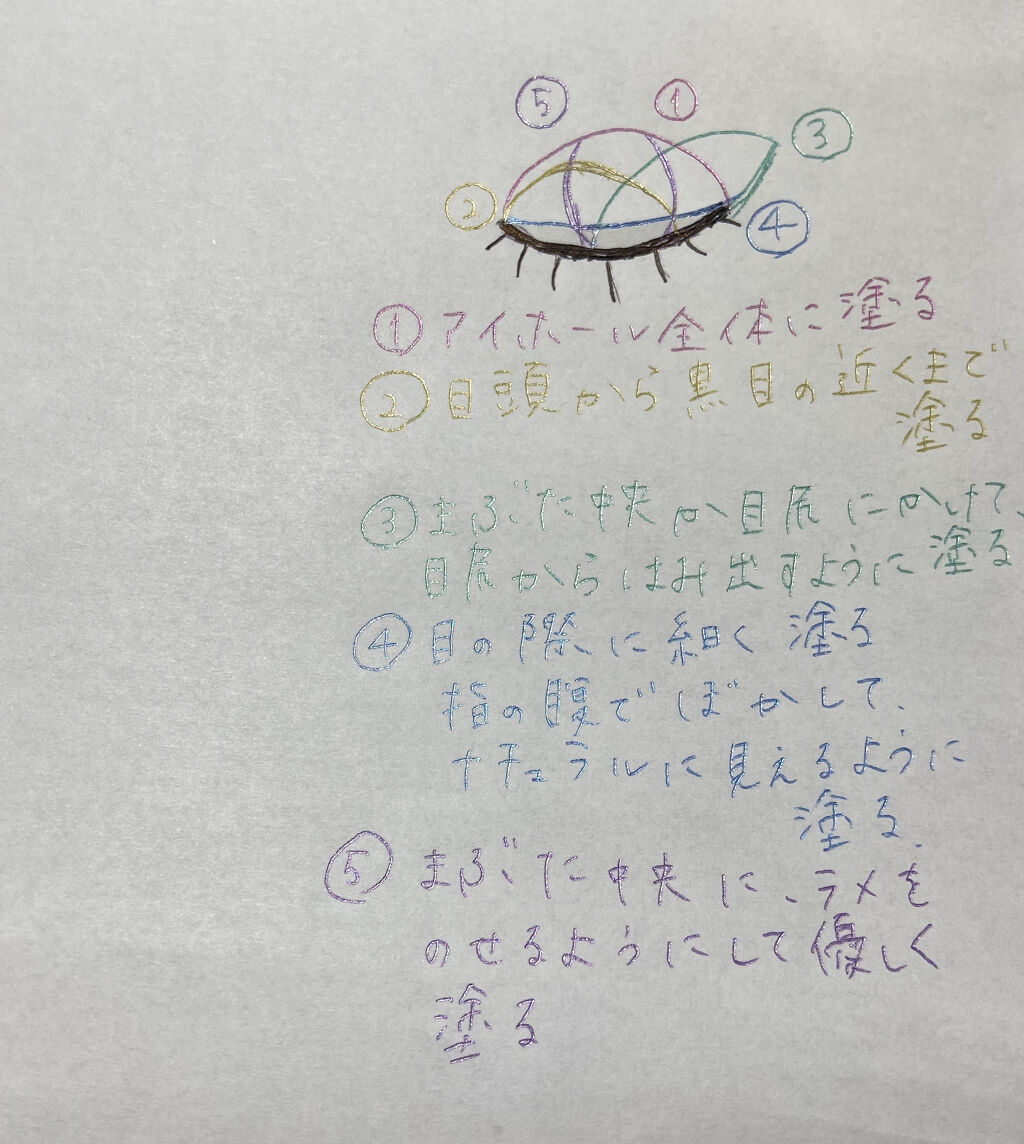 ⑤ ①
③
② ④
①アイホール全体に塗る
②目頭から黒目の近くまで
塗る
③まぶた中央か目尻にかけて、
目尻からはみ出すように塗る
④目の際に細く塗る
指の腹でぼかして、
ナチュラルに見えるように
塗る.
⑤まぶた中央に、ラメを
のせるようにして優しく
塗る